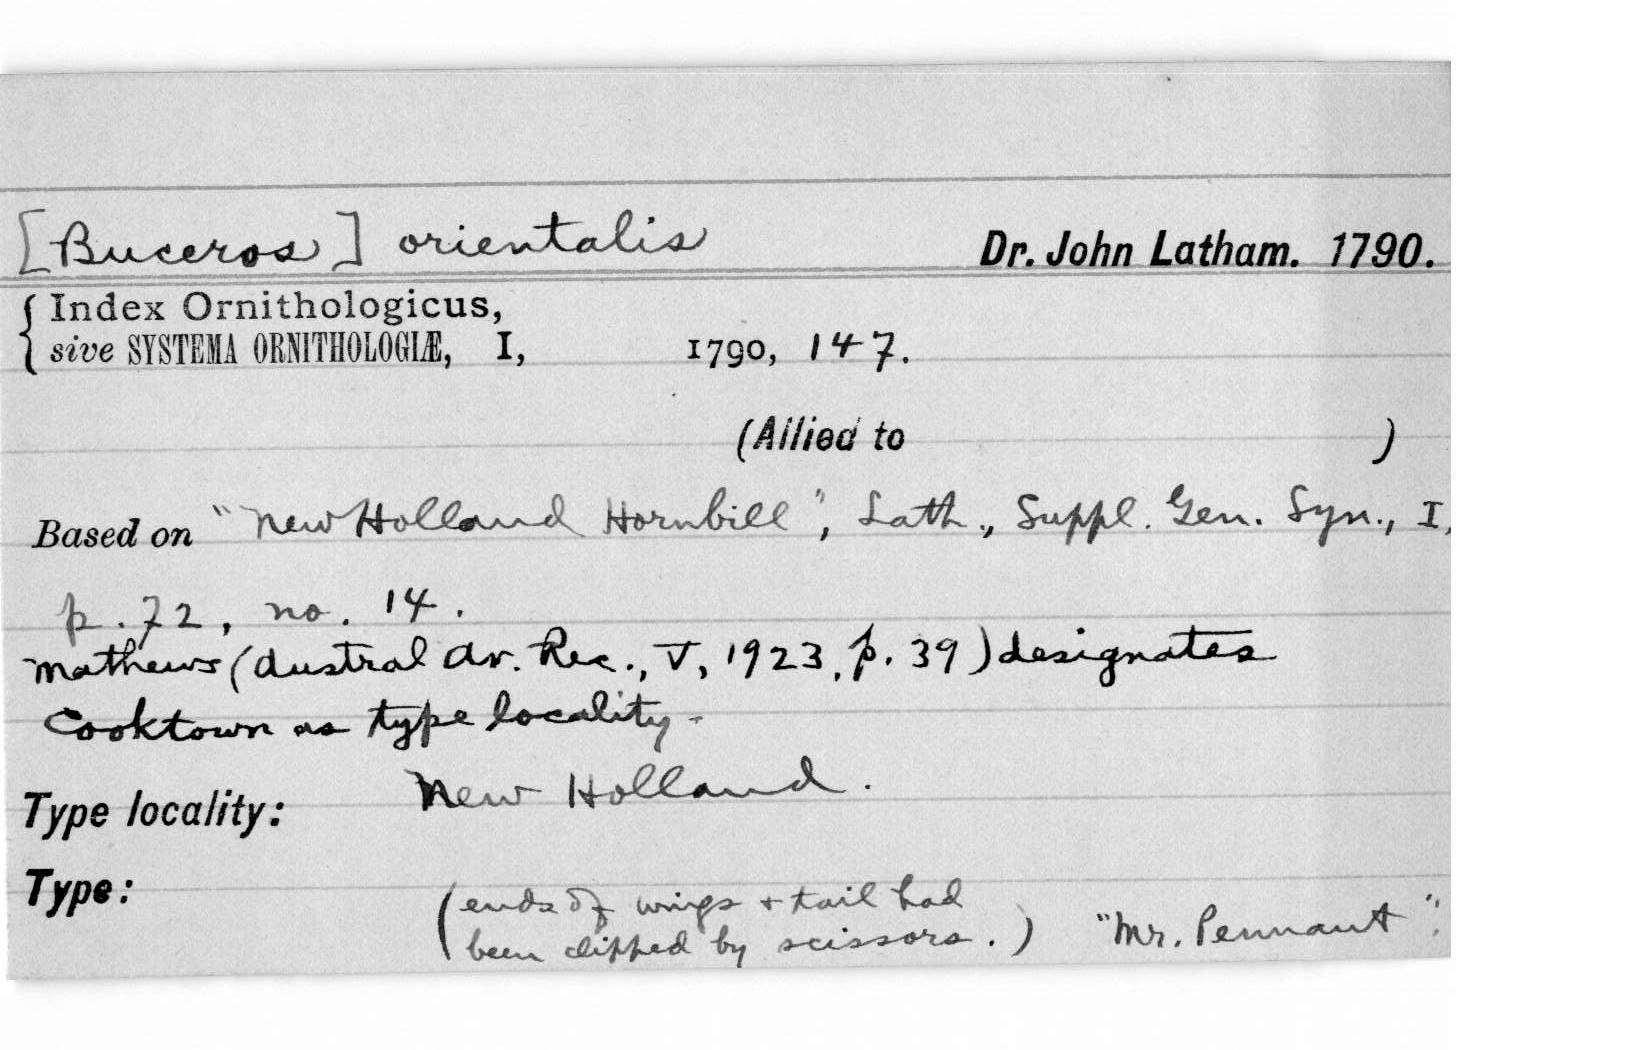 [Buceros] orientalis Dr. John Latham. 1790.
Index Ornithologicus,
sive SYSTEMA ORNITHOLOGIÆ, I, 1790, 147.
(Allied to )
Based on "New Holland Hornbill", Lath., Suppl. Gen. Syn., I,
p. 72, no. 14.
Mathews (Austral Av. Rec., V, 1923, p. 39) designates
Cooktown as type locality.
Type locality: New Holland.
Type: (ends of wings + tail had
been clipped by scissors.) "Mr. Pennant".